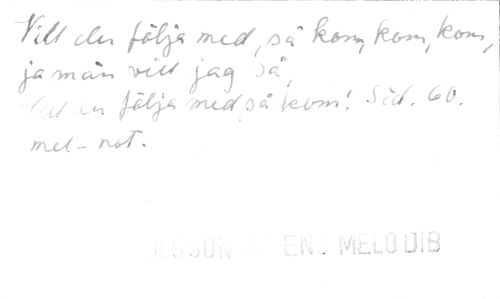 Vill du följa med, så kom, kom, kom,
ja män vill jag så,
Vill du följa med, så kom! Sid. 60.
mel-not.
ENS MELODIB